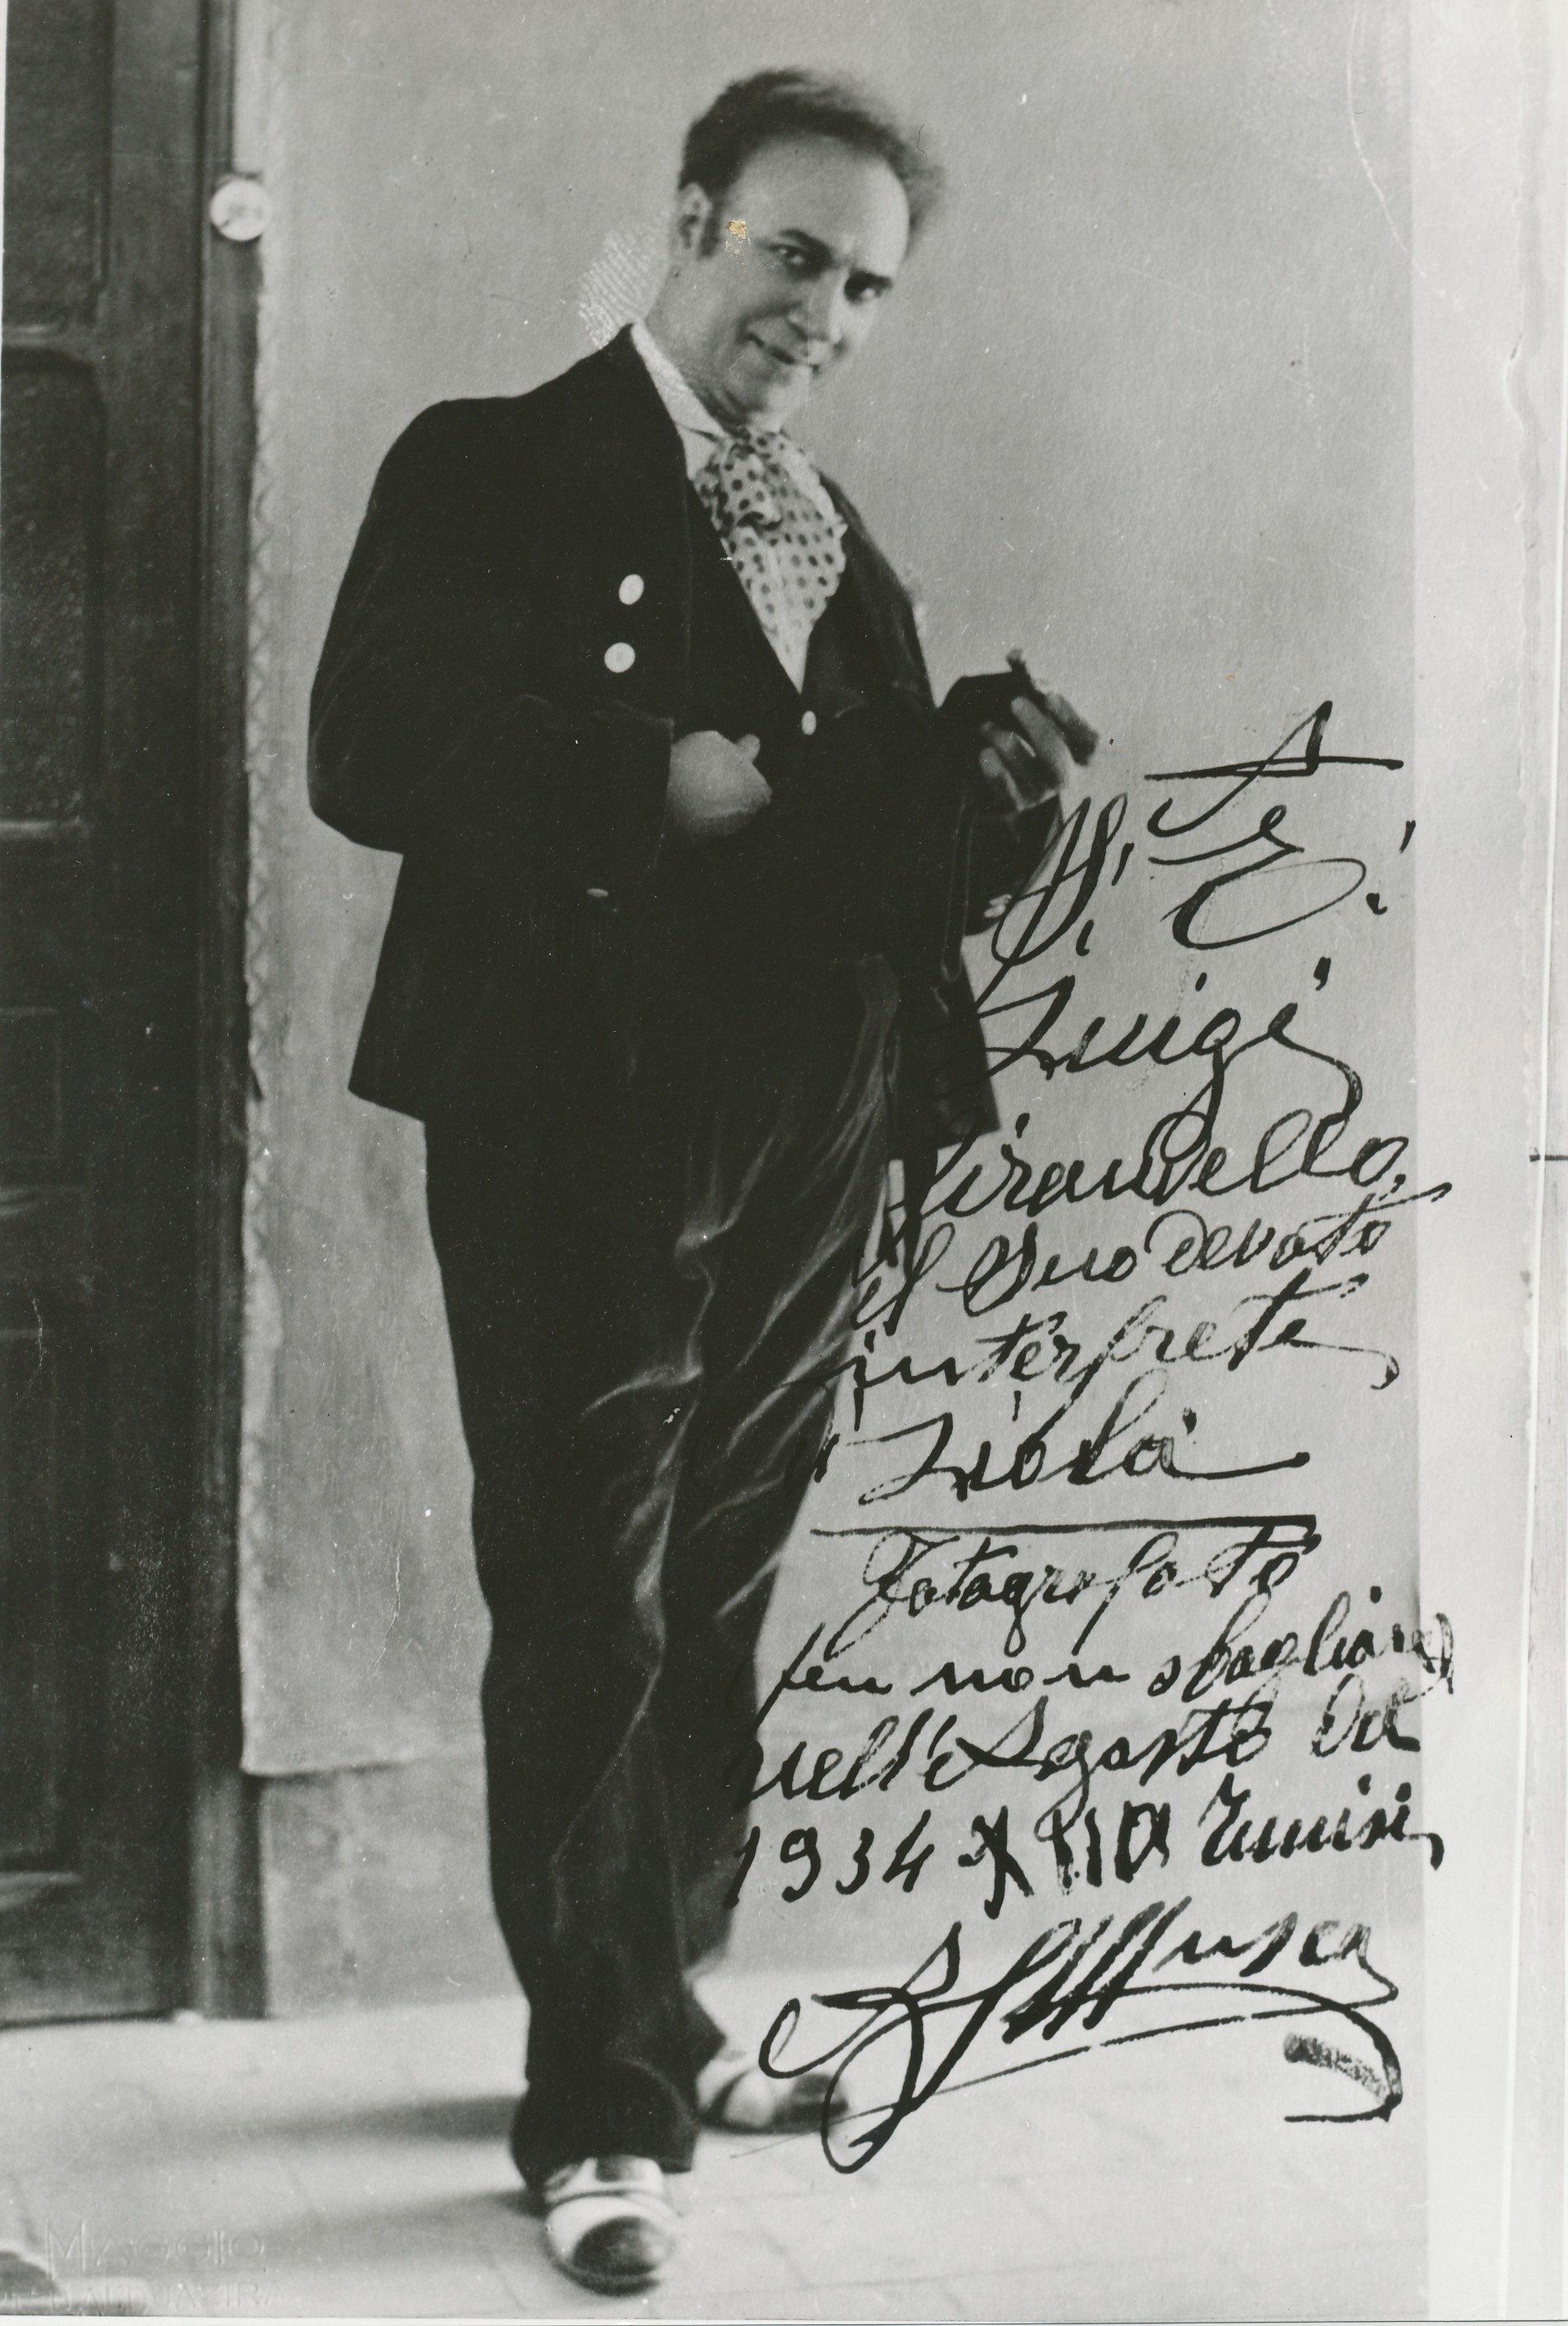 A
S. E.
Luigi
Pirandello,
il suo devoto
interprete
Liolà
Fotografato
per non sbagliare
nell'Agosto del
1934 XII a Tunisi
Musco
MAGGIO